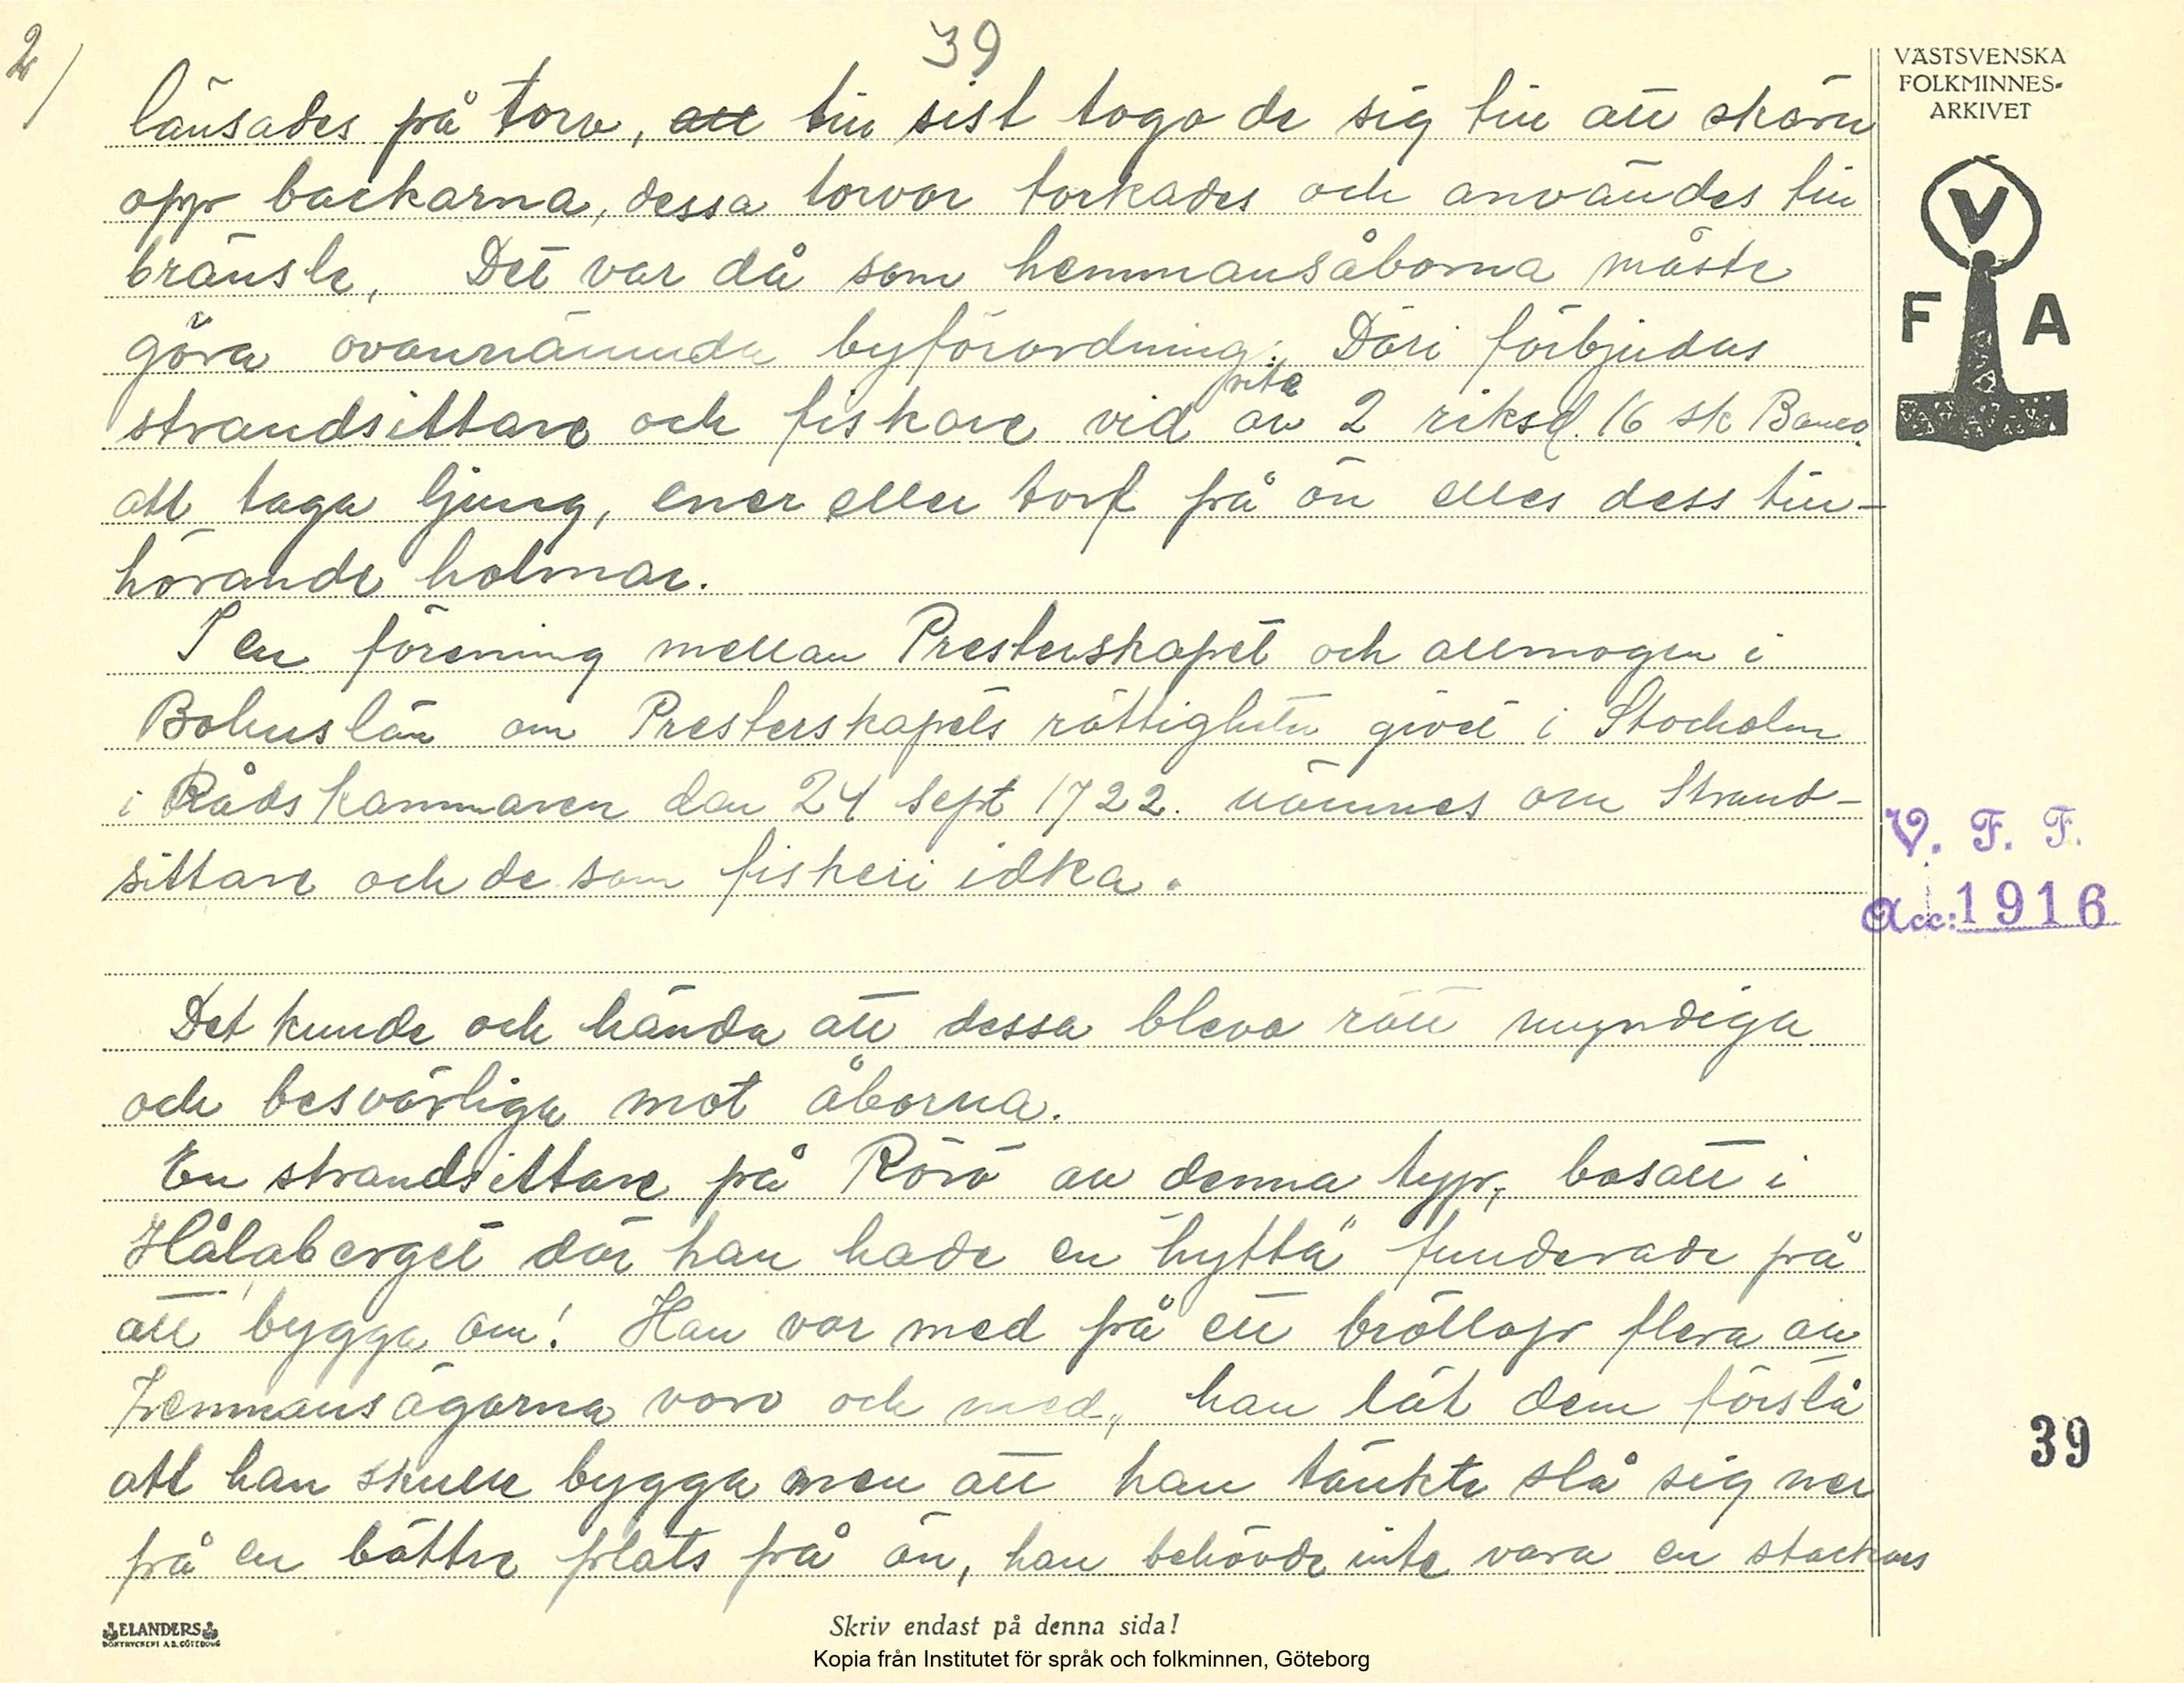 2/
39
länsades på torv, att till sist togo de sig till att skära
opp backarna, dessa torvor torkades och användes till
bränsle, Det var då som hemmansåborna måste
göra ovannämnda byförordning. Däri förbjudas
vite
strandsittare och fiskare vid av 2 riksd. 16 sk Banco.
att taga ljung, ener eller torf på ön elles dess till-
hörande holmar.
I en förening mellan Presterskapet och allmogen i
Bohuslän om Presterskapets rättigheter givet i Stockolm
i Rådskammaren den 24 Sept 1722. nämnes om Strand-
sittare och de som fiskeri idka.
Det kunde och hända att dessa bleva rätt myndiga
och besvärliga mot åborna.
En strandsittare på Rörö av denna typ, bosatt i
Hålaberget där han hade en "hytta" funderade på
att bygga om! Han var med på ett bröllop flera av
Hemmansägarna voro och med,, han lät dem förstå
att han skulle bygga men att han tänkte slå sig ner
på en bättre plats på ön, han behövde inte vara en stackars
VÄSTSVENSKA
FOLKMINNES-
ARKIVET
V
F A
V. F. F.
Acc: 1916
39
ELANDERS
BOKTRYCKERI A.B. GÖTEBORG
Skriv endast på denna sida!
Kopia från Institutet för språk och folkminnen, Göteborg